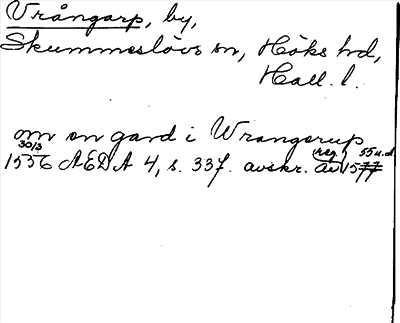 Vrångarp, by,
Skummeslövs sn, Höks hd,
Hall. l.
om en gard i Wrangerup
30/3 (reg.) 55 u.d.
1556 AEDA 4, s. 337. avskr. av 1577